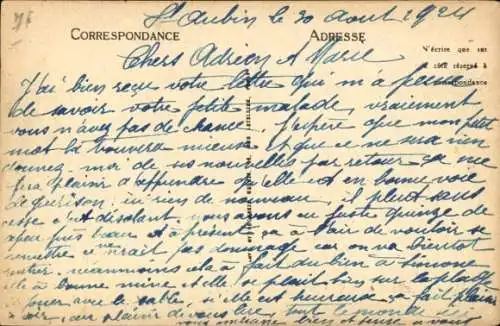 St Aubin le 30 août 1924
CORRESPONDANCE ADRESSE
Chers Adrien & Marie
N'écrire que sur
le côté réservé à
la correspondance
J'ai bien reçu votre lettre qui m'a peiné
de savoir votre petite malade, vraiment
vous n'avez pas de chance. J'espère que mon petit
mot la trouvera mieux et que ce ne sera rien
donnez-moi de ses nouvelles par retour ça me
fera plaisir d'apprendre qu'elle est en bonne voie
de guérison. ici rien de nouveau, il pleut sans
cesse c'est désolant. nous avons eu juste quinze de
à peu près beau et à présent ça à l'air de vouloir se
remettre ce n'est pas dommage car on va bientôt
rentrer. néanmoins cela à fait du bien à Simone
elle à bonne mine et elle se plait bien sur la plage
à jouer avec le sable, si elle est heureuse ça fait plaisir
à voir, au plaisir de vous lire. tout le monde se